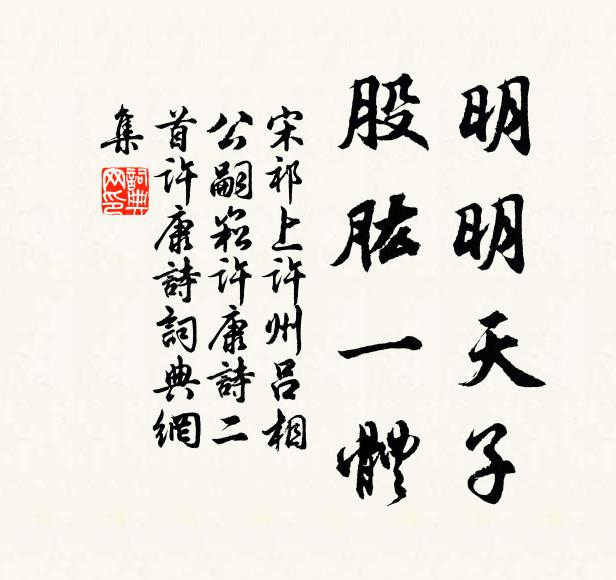 明明天子
股肱一體
宋祁上許州呂相
公嗣崧許康詩二
首許康詩詞典網
集
詞典網印